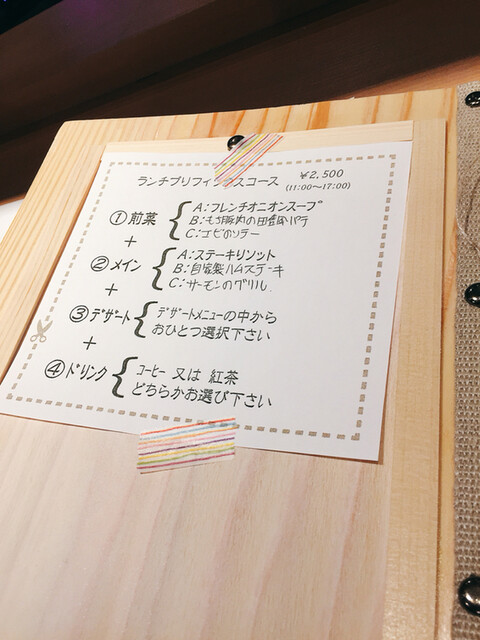 ランチプリフィックスコース ¥2,500
(11:00〜17:00)
①前菜
A:フレンチオニオンスープ
B:もち豚肉の田舎風パテ
C:エビのソテー
+
②メイン
A:ステーキリゾット
B:自家製ハムステーキ
C:サーモンのグリル
+
③デザート
デザートメニューの中から
おひとつ選択下さい
+
④ドリンク
コーヒー 又は 紅茶
どちらかお選び下さい